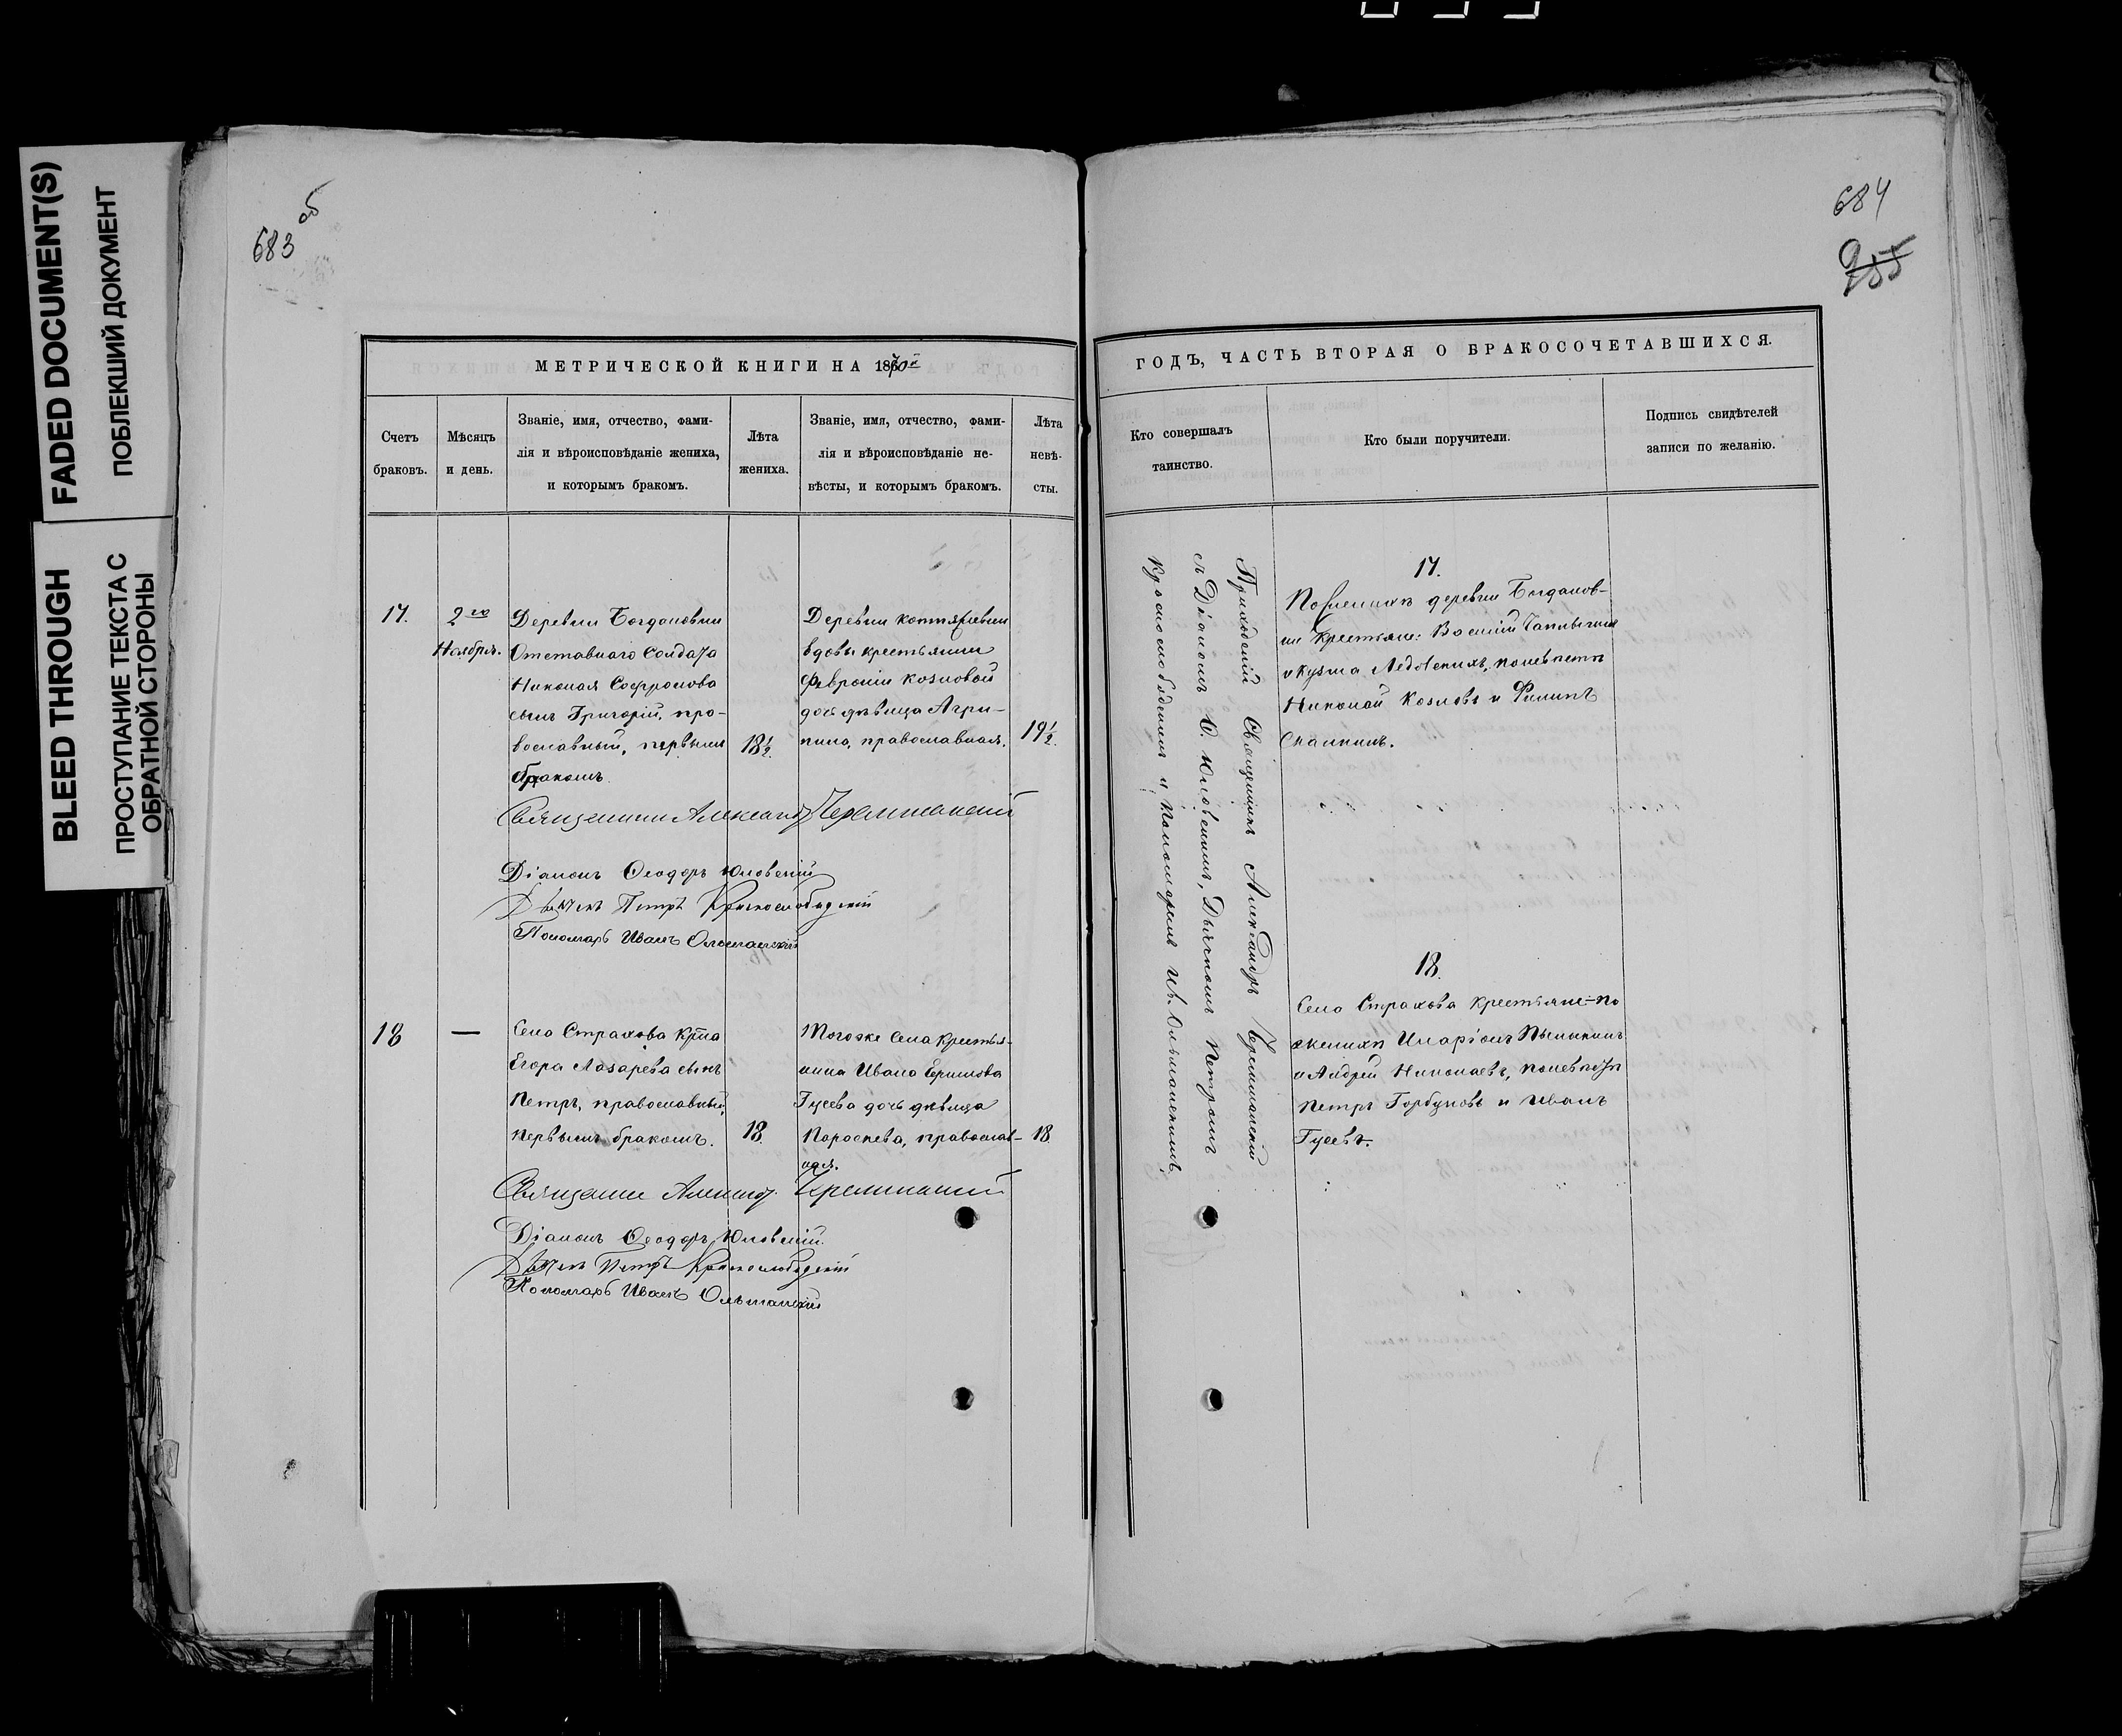 FADED DOCUMENT(S)
ПОБЛЕКШИЙ ДОКУМЕНТ
BLEED THROUGH
ПРОСТУПАНИЕ ТЕКСТА С
ОБРАТНОЙ СТОРОНЫ
683 об
МЕТРИЧЕСКОЙ КНИГИ НА 1870й
Счетъ
браковъ.
Мѣсяцъ
и день.
Званіе, имя, отчество, фами-
лія и вѣроисповѣданіе жениха,
и которымъ бракомъ.
Лѣта
жениха.
Званіе, имя, отчество, фами-
лія и вѣроисповѣданіе не-
вѣсты, и которымъ бракомъ.
Лѣта
невѣ-
сты.
17.
2го
Ноября.
Деревни Богдановки
Отставнаго Солдата
Николая Софронова
сынъ Григорій, пра-
вославный, первымъ
бракомъ.
18½.
Деревни
вдовы крестьянки
Февроніи Козловой
дочь дѣвица Агри-
пина, православная.
19½.
Священникъ Александръ
Діаконъ Ѳеодоръ Юловскій
Дьячекъ Петръ Краснослободскій
Пономарь Иванъ Ольшанскій
18
—
Села Страхова Крᲂна
Егора Лазарева сынъ
Петръ, православный,
первымъ бракомъ.
18.
Тогоже Села Крестья-
нина Ивана
Гусева дочь дѣвица
Параскева, православ-
ная.
18
Священникъ
Діаконъ Ѳеодоръ Юловскій.
Дьячекъ Петръ Краснослободскій
Пономарь Иванъ Ольшанскій
684
955
ГОДЪ, ЧАСТЬ ВТОРАЯ О БРАКОСОЧЕТАВШИХСЯ.
Кто совершалъ
таинство.
Кто были поручители.
Подпись свидѣтелей
записи по желанію.
Приходскій Священникъ Александръ
съ Діакономъ Ѳ. Юловскимъ, Дьячкомъ Петромъ
Краснослободскимъ и Пономаремъ Ив. Ольшанскимъ.
17.
По женихѣ деревни Богданов-
ки Крестьяне: Василій
и Кузма по невѣстѣ
Николай Козловъ и Филипъ
18.
Села Страхова Крестьяне по
женихѣ Иларіонъ
и Андрей Николаевъ, по невѣстѣ
Петръ Горбуновъ и Иванъ
Гусевъ.